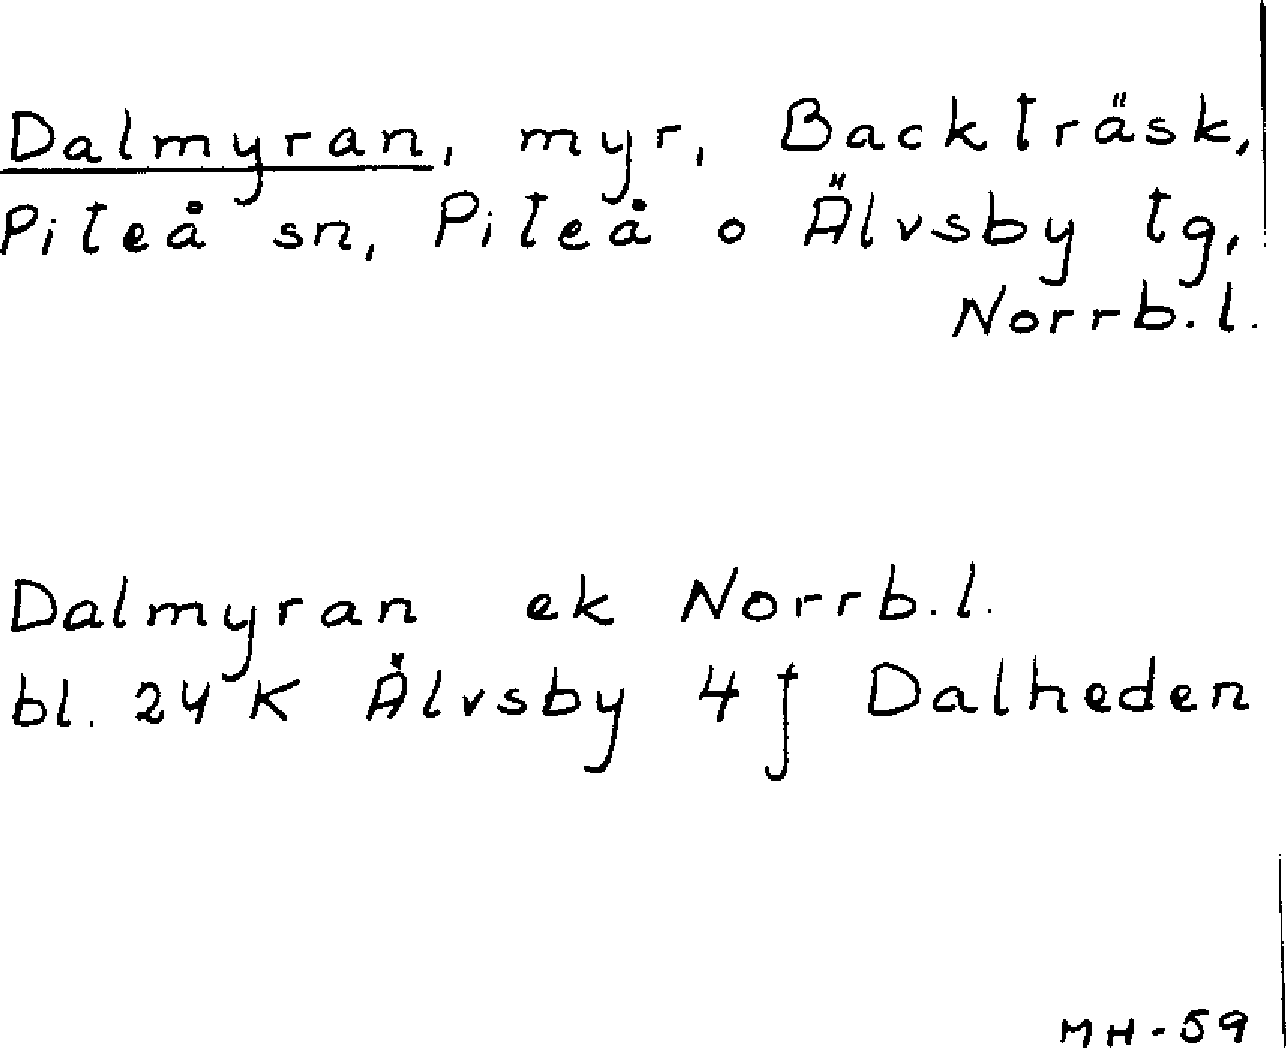 Dalmyran, myr, Backträsk,
Piteå sn, Piteå o Älvsby tg,
Norrb.l.
Dalmyran ek Norrb.l.
bl. 24 K Älvsby 4 f Dalheden
MH-59